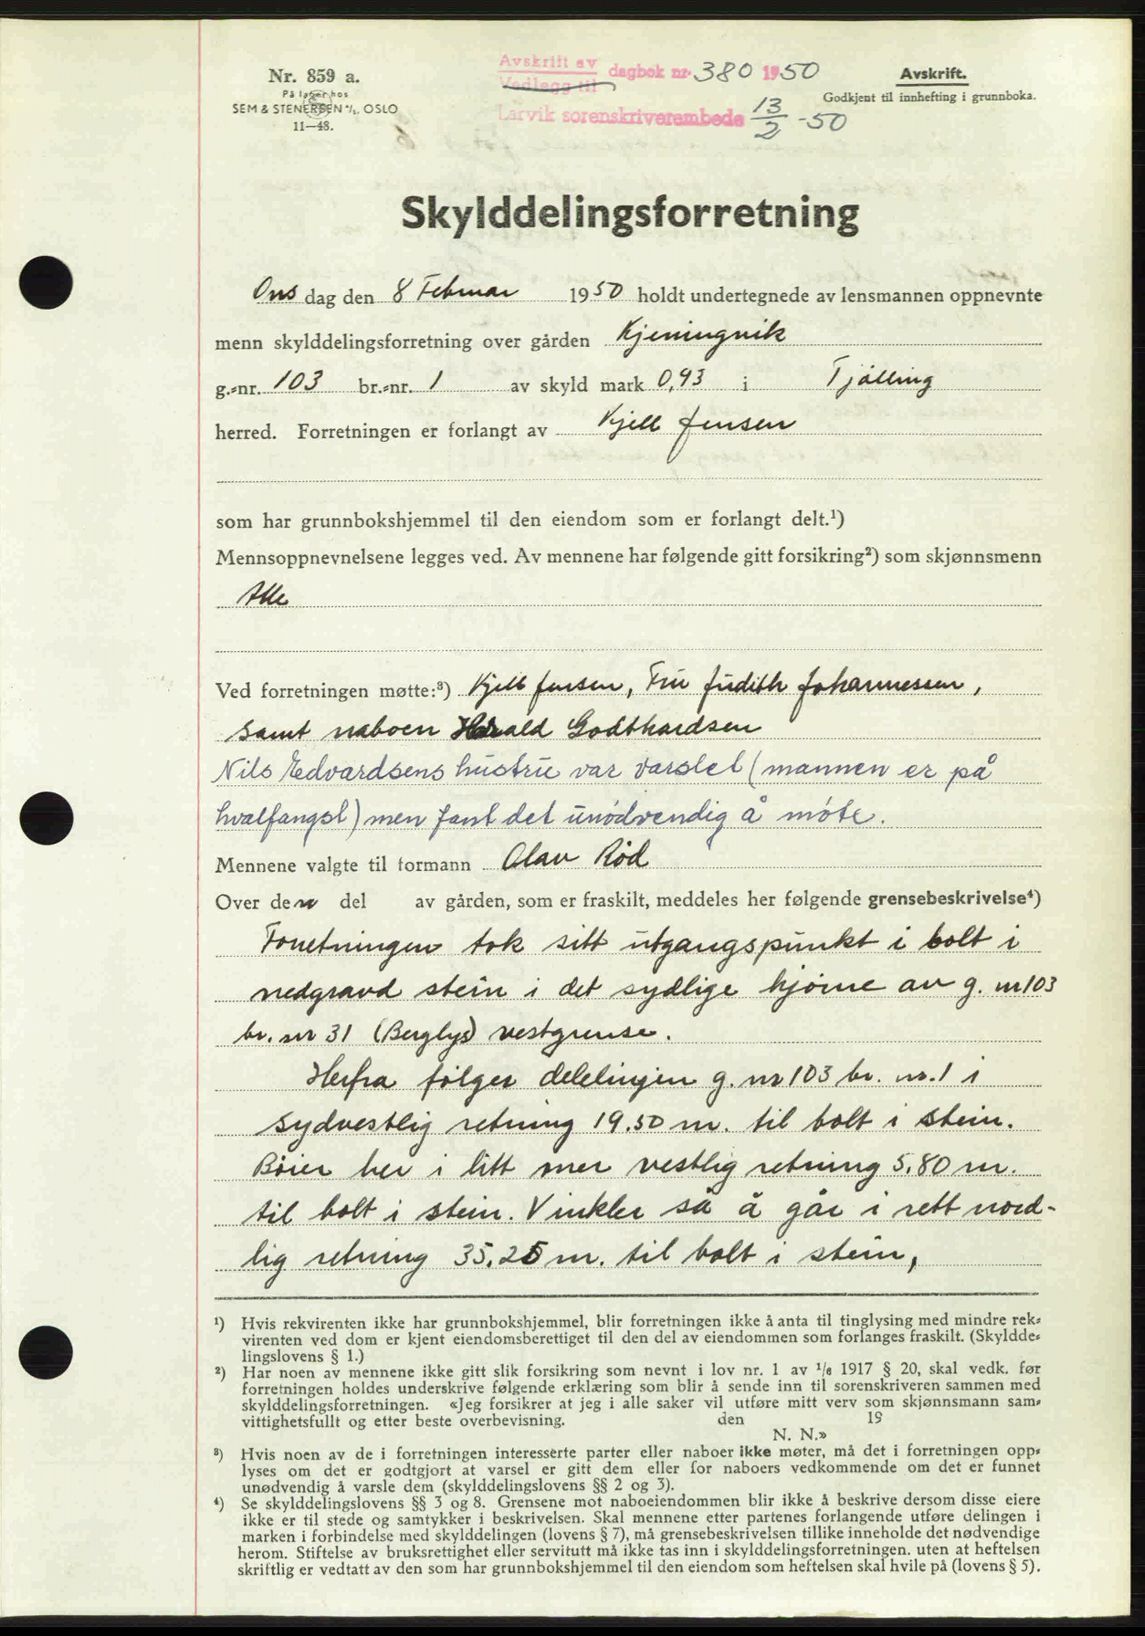 Nr. 859 a.
På lager hos
SEM & STENERSEN A/S. OSLO
11—48.
Avskrift av
Vedlegg til
dagbok nr. 380 1950
Larvik sorenskriverembede 13/2-50
Avskrift.
Godkjent til innhefting i grunnboka.
Skylddelingsforretning
Ons dag den 8 Februar 1950 holdt undertegnede av lensmannen oppnevnte
menn skylddelingsforretning over gården Kjeningvik
g.-nr. 103 br.-nr. 1 av skyld mark 0,93 i Tjölling
herred. Forretningen er forlangt av Kjell Jensen
som har grunnbokshjemmel til den eiendom som er forlangt delt.¹)
Mennsoppnevnelsene legges ved. Av mennene har følgende gitt forsikring²) som skjønnsmenn
Alle
Ved forretningen møtte:³) Kjell Jensen, Fru Judith Johannessen,
samt naboen Harald Godthardsen
Nils Edvardsens hustru var varslet (mannen er på
hvalfangst) men fant det unödvendig å möte.
Mennene valgte til formann Olav Röd
Over den del av gården, som er fraskilt, meddeles her følgende grensebeskrivelse⁴)
Forretningen tok sitt utgangspunkt i bolt i
nedgravd stein i det sydlige hjörne av g. nr 103
br. nr 31 (Berglys) vestgrense.
Herfra fölger delelinjen g. nr 103 br. nr. 1 i
sydvestlig retning 19.50 m. til bolt i stein.
Böier her i litt mer vestlig retning 5.80 m.
til bolt i stein. Vinkler så å går i rett nord-
lig retning 35.25 m. til bolt i stein,
¹) Hvis rekvirenten ikke har grunnbokshjemmel, blir forretningen ikke å anta til tinglysing med mindre rek-
virenten ved dom er kjent eiendomsberettiget til den del av eiendommen som forlanges fraskilt. (Skyldde-
lingslovens § 1.)
²) Har noen av mennene ikke gitt slik forsikring som nevnt i lov nr. 1 av 1/6 1917 § 20, skal vedk. før
forretningen holdes underskrive følgende erklæring som blir å sende inn til sorenskriveren sammen med
skylddelingsforretningen. «Jeg forsikrer at jeg i alle saker vil utføre mitt verv som skjønnsmann sam-
vittighetsfullt og etter beste overbevisning. den 19
N. N.»
³) Hvis noen av de i forretningen interesserte parter eller naboer ikke møter, må det i forretningen opp-
lyses om det er godtgjort at varsel er gitt dem eller for naboers vedkommende om det er funnet
unødvendig å varsle dem (skylddelingslovens §§ 2 og 3).
⁴) Se skylddelingslovens §§ 3 og 8. Grensene mot naboeiendommen blir ikke å beskrive dersom disse eiere
ikke er til stede og samtykker i beskrivelsen. Skal mennene etter partenes forlangende utføre delingen i
marken i forbindelse med skylddelingen (lovens § 7), må grensebeskrivelsen tillike inneholde det nødvendige
herom. Stiftelse av bruksrettighet eller servitutt må ikke tas inn i skylddelingsforretningen. uten at heftelsen
skriftlig er vedtatt av den som har grunnbokshjemmel til den eiendom som heftelsen skal hvile på (lovens § 5).